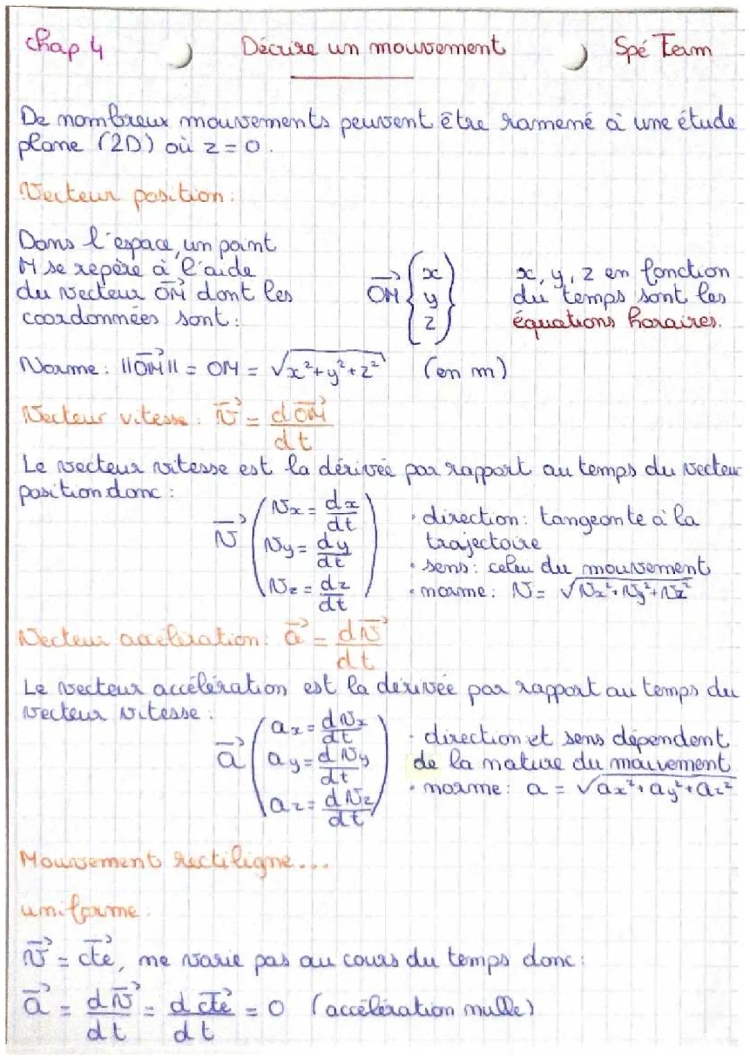 Chap 4 Décrire un mouvement Spé Term
De nombreux mouvements peuvent être ramené à une étude
plane (2D) où z = 0.
Vecteur position :
Dans l'espace, un point
M se repère à l'aide
du vecteur \vec{OM} dont les
coordonnées sont :
\vec{OM} { x y z }
x, y, z en fonction
du temps sont les
équations horaires.
Norme : ||\vec{OM}|| = OM = √(x²+y²+z²) (en m)
Vecteur vitesse : \vec{v} = d\vec{OM}/dt
Le vecteur vitesse est la dérivée par rapport au temps du vecteur
position donc :
\vec{v} ( vx = dx/dt
vy = dy/dt
vz = dz/dt )
· direction : tangeante à la
trajectoire
· sens : celui du mouvement
· norme : v = √(vx²+vy²+vz²)
Vecteur accélération : \vec{a} = d\vec{v}/dt
Le vecteur accélération est la dérivée par rapport au temps du
vecteur vitesse :
\vec{a} ( ax = dvx/dt
ay = dvy/dt
az = dvz/dt )
· direction et sens dépendent
de la nature du mouvement
· norme : a = √(ax²+ay²+az²)
Mouvement rectiligne...
uniforme.
\vec{v} = \vec{cte}, ne varie pas au cours du temps donc :
\vec{a} = d\vec{v}/dt = d\vec{cte}/dt = 0 (accélération nulle)